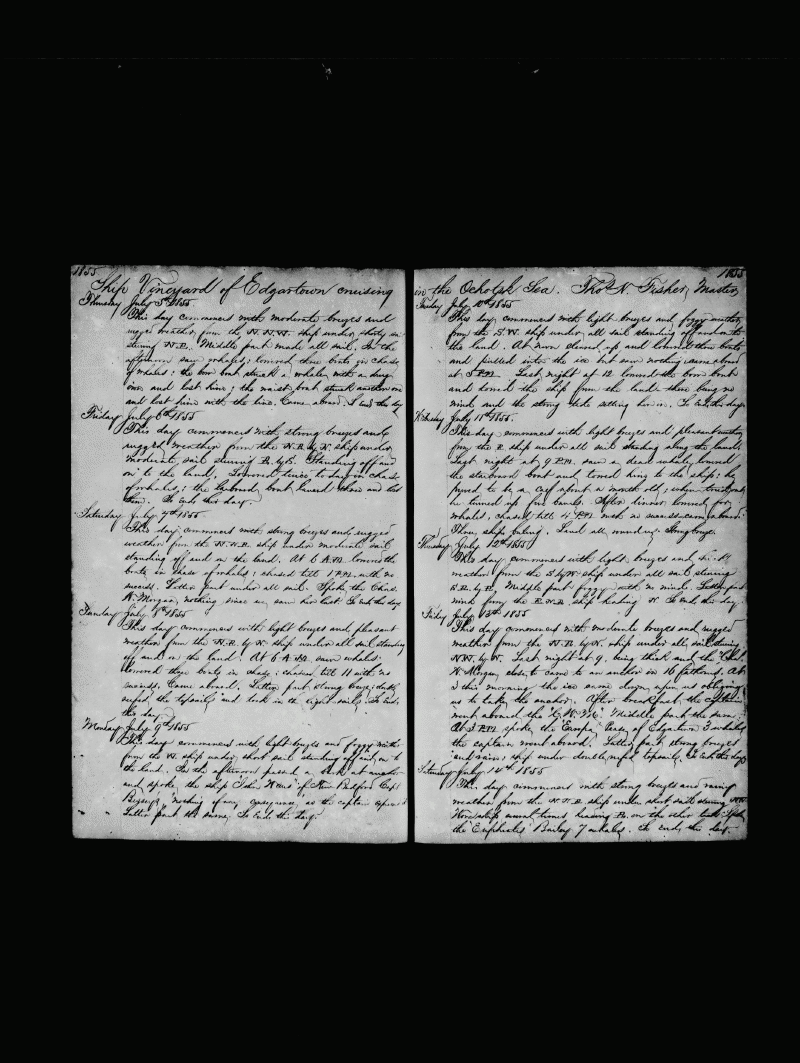 1855
Ship Vineyard of Edgartown cruising
Thursday July 5th 1855
This day commences with moderate breezes and
rugged weather from the N.N.W. ship under shorty sail
steering N.E. Middle part made all sail. In the
afternoon saw whales; lowered three boats in chase
of whales; the bow boat struck a whale, with a
one, and lost him; the waist boat struck another one
and lost him with the line. Came aboard. So Ends this day
Friday July 6th 1855
This day commences with strong breezes and
rugged weather from the N.E. by N. ship under
moderate sail steering E. by S. Standing off and
on to the land. Lowered twice to day in chase
of whales; the larboard boat
him. So Ends this day.
Saturday July 7th 1855
This day commences with strong breezes and rugged
weather from the N.N.E. ship under moderate sail
standing off and on the land. At 6 A.M. lowered the
boats in chase of whales; chased till 1 P.M. with no
success. Latter part under all sail. Spoke the Chas.
W. Morgan, nothing since we saw her last. So Ends this day
Sunday July 8th 1855
This day commences with light breezes and pleasant
weather from the N.E. by N. ship under all sail standing
off and on the land. At 6 A.M. saw whales
lowered three boats in chase; chased till 11 with no
success. Came aboard. Latter part strong breeze; double
reefed the topsails and took in the light sails. So Ends
this day.
Monday July 9th 1855
This day commences with light breezes and foggy weather
from the N. ship under short sail standing off and on to
the land. In the afternoon passed a at anchor
and spoke the ship "John Howland" of New Bedford Capt
nothing of any as the captain
Latter part the same. So Ends this day.
1855
in the Ochotsk Sea. Thos N. Fisher, Master
July 10th 1855
This day commences with light breezes and foggy weather
from the S.W. ship under all sail standing off and on to
the land. At noon cleared up and lowered three boats
and pulled into the ice but saw nothing, came aboard
at 5 P.M. Last night at 12 lowered the bow boat
and towed the ship from the land there being no
wind and the strong tide setting her in. So Ends this day.
Wednesday July 11th 1855.
This day commences with light breezes and pleasant weather
from the E. ship under all sail standing along the land.
Last night at 9 P.M. saw a dead whale, lowered
the starboard boat and towed him to the ship; he
proved to be a calf about a month old; when tried out
he turned up five bbls. After dinner lowered for
whales, chased till 4 P.M. with no success came aboard.
ships boiling. Land all round us. Strong breeze.
Thursday July 12th 1855
This day commences with light breezes and
weather from the S. by W. ship under all sail steering
E. by Middle part foggy with no wind. Latter part
wind from the E.N.E. ship heading N. So Ends this day
Friday July 13th 1855
This day commences with moderate breezes and rugged
weather from the N.E. by N. ship under all sail steering
N.W. by N. Last night at 9, being thick and the "Chas.
W. Morgan" close to came to an anchor in 16 fathoms. At
3 this morning the ice came down upon us obliging
us to take the anchor. After breakfast the captain
went aboard the "C. W. M." Middle part the same.
At 5 P.M. spoke the "Europa" Pease of Edgartown 3 whales
the captain went aboard. Latter part strong breezes
and rain; ship under double reefed topsails. So Ends this day
Saturday July 14th 1855
This day commences with strong breezes and rainy
weather from the N.N.E. ship under short sail steering N.W.
several times heading E. on the other tack. Spoke
the "Euphrates" 7 whales. So Ends this day.